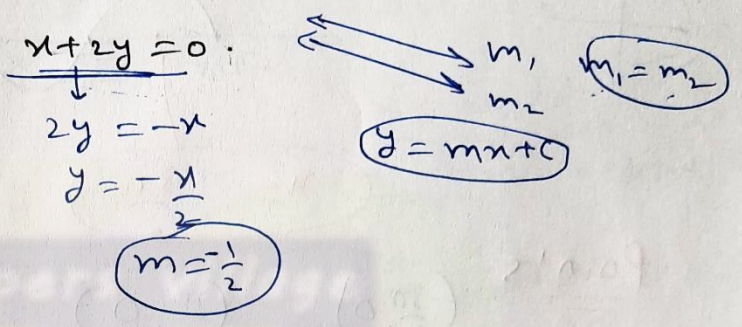 x + 2y = 0.
2y = -x
y = -x/2
m = -1/2
m₁
m₂
m₁ = m₂
y = mx + C